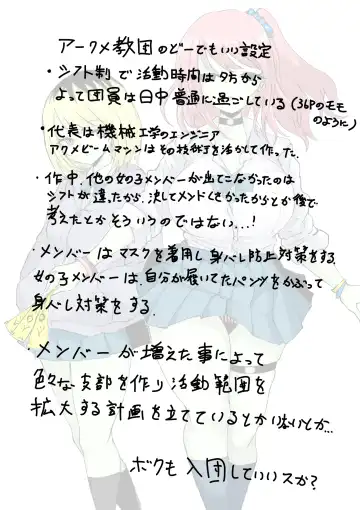 アークメ教団のどーでもいい設定
・シフト制で活動時間は夕方から
よって団員は日中普通に過ごしている(36Pのモモ
のように)
・代表は機械工学のエンジニア
アクメビームマシンはその技術を活かして作った.
・作中、他の女の子メンバーが出てこなかったのは
シフトが違ったから、決してメンドくさかったからとか後で
考えたとかそういうのではない…!
・メンバーはマスクを着用し身バレ防止対策をする
女の子メンバーは、自分が履いてたパンツをかぶって
身バレ対策をする.
・メンバーが増えた事によって
色々な支部を作り活動範囲を
拡大する計画を立てているとかいないとか…
ボクも入団していいスか?